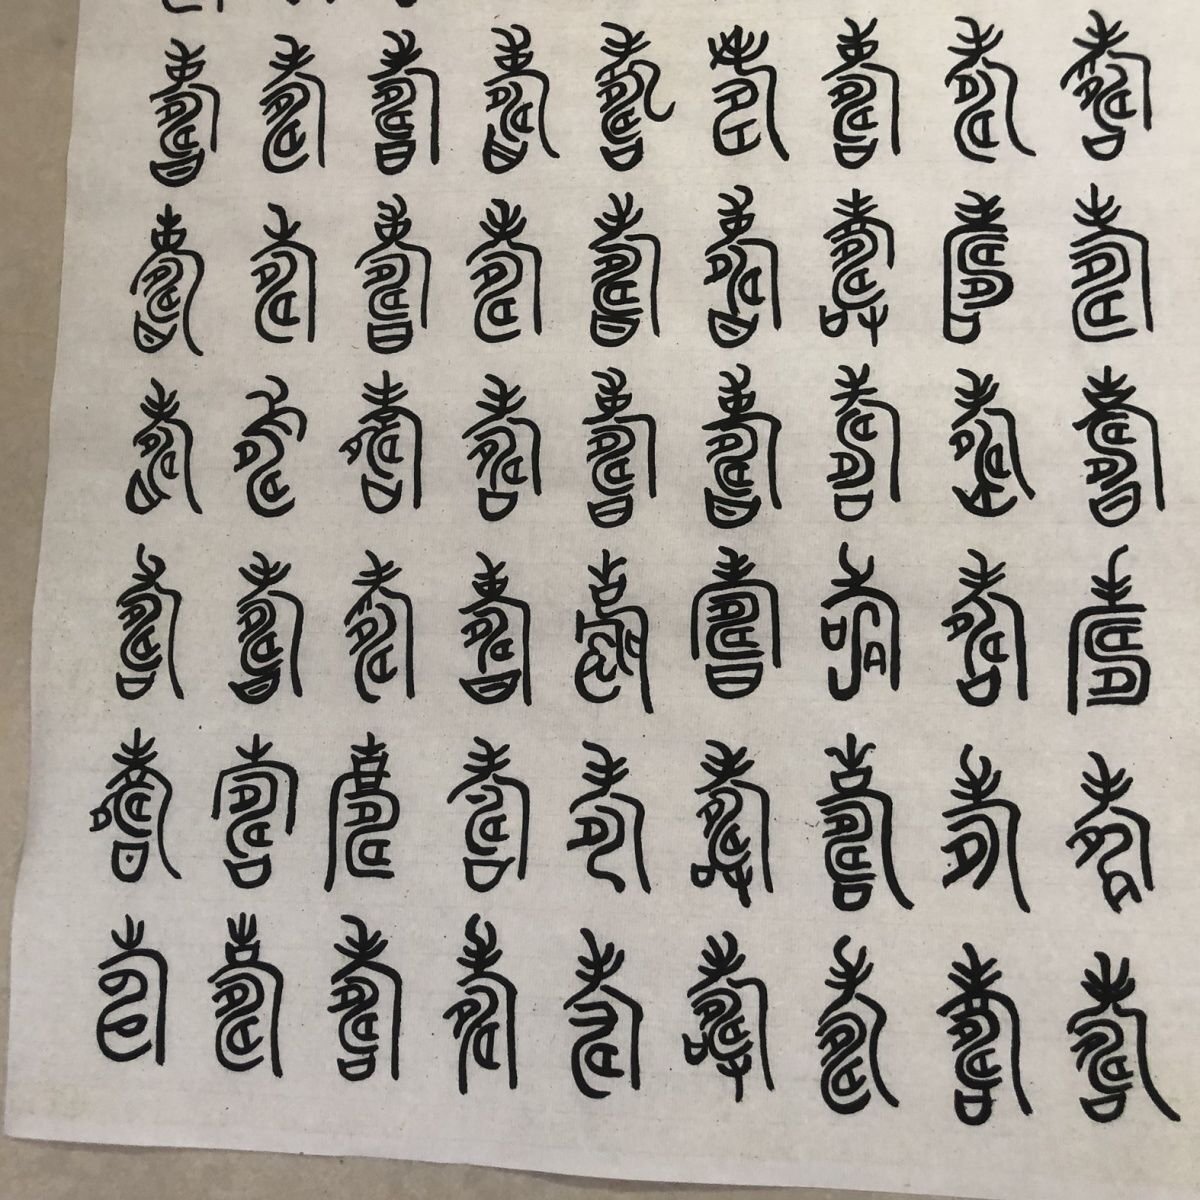 壽壽壽壽壽壽壽壽壽
壽壽壽壽壽壽壽壽壽
壽壽壽壽壽壽壽壽壽
壽壽壽壽壽壽壽壽壽
壽壽壽壽壽壽壽壽壽
壽壽壽壽壽壽壽壽壽